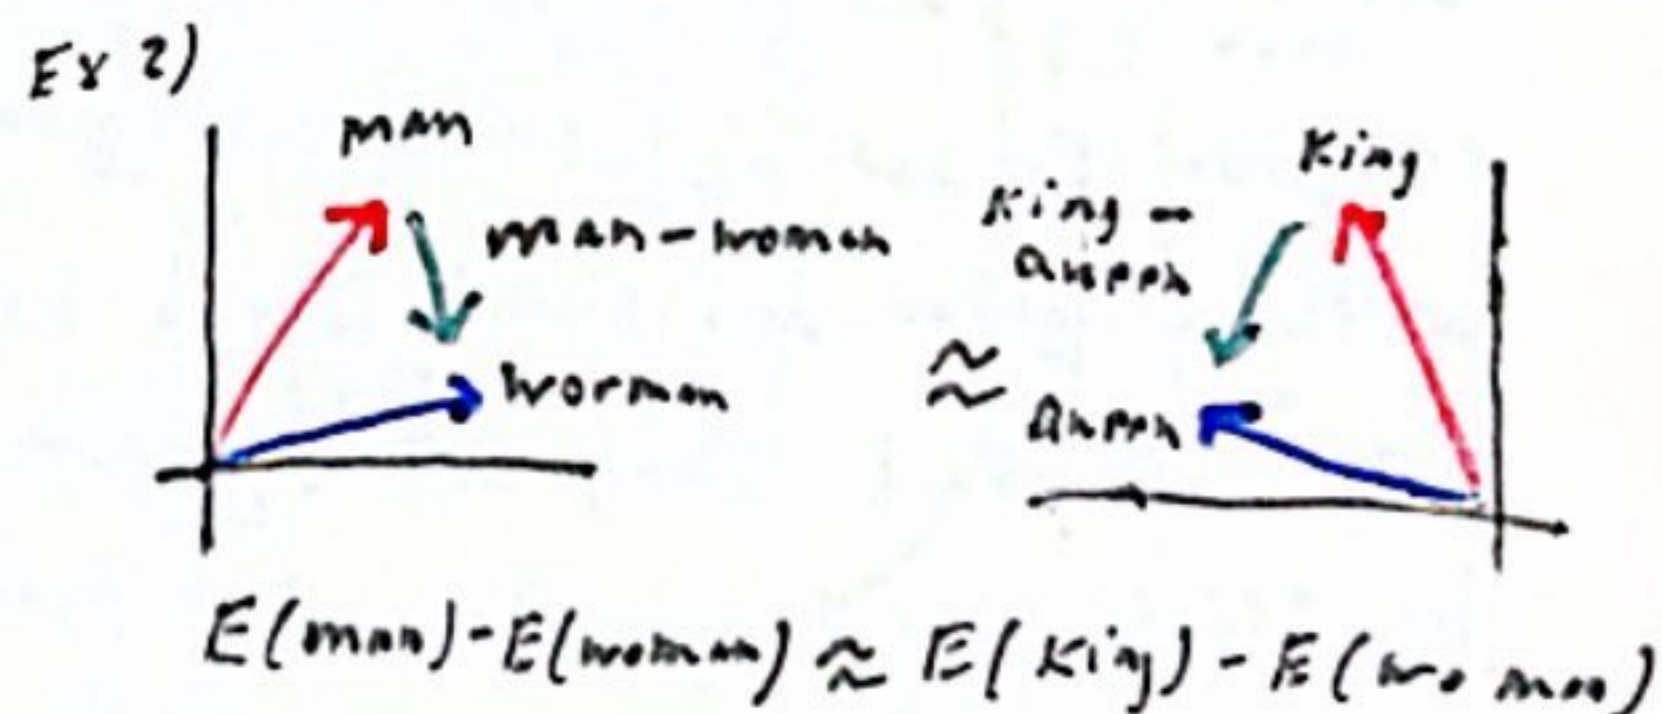 Ex 2)
man
man-woman
woman
≈
King
King -
Queen
Queen
E(man)-E(woman) ≈ E(King) - E(woman)